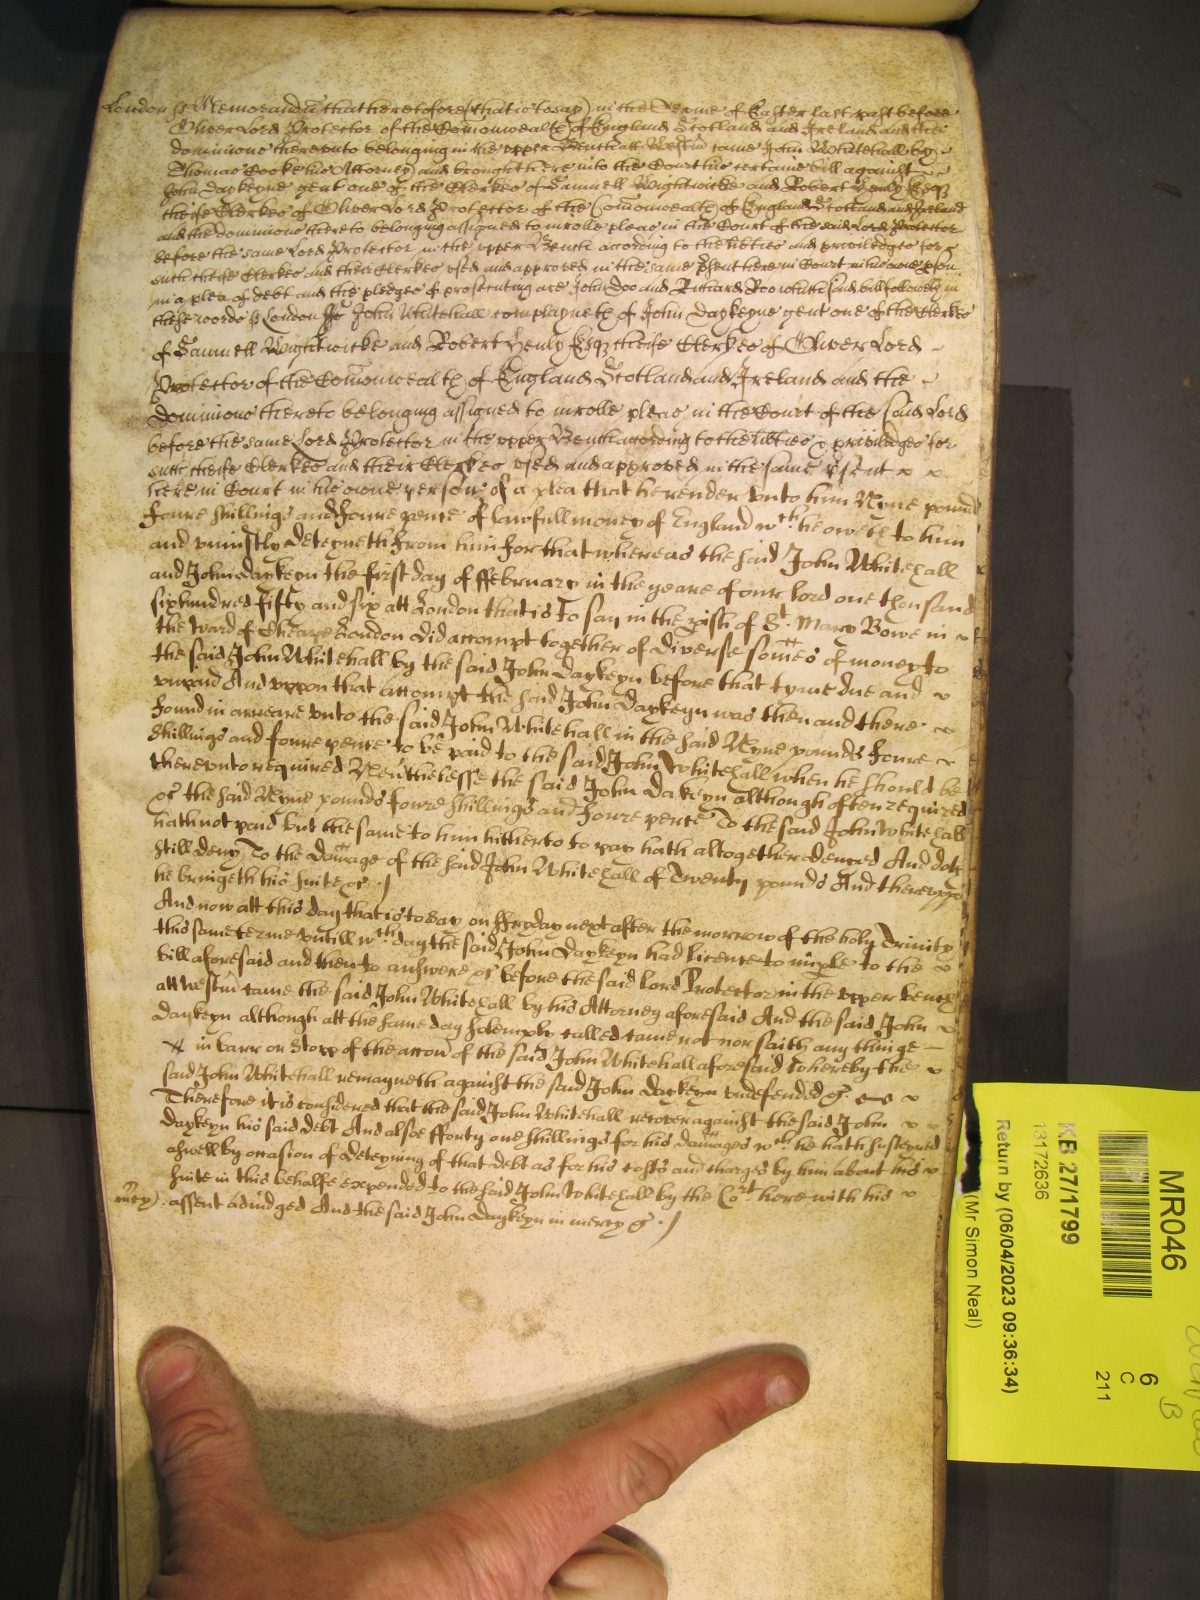 London ss Memorandu that heretofore (that is to say) in the Terme of Easter last past before
Oliver Lord Protector of the Comonwealth of England Scotland and Ireland and the
dominions thereunto belonging in the upper Bench att Westm came John Whitehall by
Thomas Cooke his Attorney and brought here into the Court his certaine bill against
John Daykeyne gent one of the Clerkes of Samuell Wightwicke and Robert Henly Esqz
cheife Clerkes of Oliver Lord Protector of the Comonwealth of England Scotland and Ireland
and the dominions thereto belonging assigned to inrolle pleas in the Court of the said Lord Protector
before the same Lord Protector in the upper Bench according to the libties and priviledges for
such cheife Clerkes and their Clerkes used and approved in the same psent here in Court in his owne pson
in a plea of debt and the pledges of prosecuting are John Doo and Richard Roo which said bill followeth in
these words ss London ss John Whitehall complayneth of John Daykeyne gent one of the Clerkes
of Samuell Wightwicke and Robert Henly Esqz cheife Clerkes of Oliver Lord
Protector of the Comonwealth of England Scotland and Ireland and the
dominions thereto belonging assigned to inrolle pleas in the Court of the said Lord
before the same Lord Protector in the upper Bench according to the libties & priviledges for
such cheife Clerkes and their Clerkes used and approved in the same psent
here in Court in his owne person of a plea that he render unto him Nyne pounds
foure shillings and foure pence of lawfull money of England wch he oweth to him
and uniustly deteyneth from him for that whereas the said John Whitehall
and John Daykeyn the first day of ffebruary in the yeare of our lord one thousand
sixhundred fifty and six att London that is to say in the pish of St. Mary Bowe in
the ward of Cheape London did accompt together of diverse somes of money to
the said John Whitehall by the said John Daykeyn before that tyme due and
unpaid And uppon that accompt the said John Daykeyn was then and there
found in arreare unto the said John Whitehall in the said Nyne pounds foure
shillings and foure pence to be paid to the said John Whitehall when he should be
thereunto required Nevthelesse the said John Dakeyn although often required
&c the said Nyne pounds foure shillings and foure pence To the said John Whitehall
hath not paid but the same to him hitherto to pay hath altogether denyed And doth
still deny To the damage of the said John Whitehall of Twenty pounds And thereuppo
he bringeth his suite &c
And now att this day that is to say on ffryday next after the morrow of the holy Trinity
this same terme untill wch day the said John Daykeyn had licence to imple to the
bill aforesaid and then to answere &c before the said lord Protector in the upper bench
att Westm came the said John Whitehall by his Attorney aforesaid And the said John
Daykeyn although att the same day solemply called came not nor saith any thinge
in barr or stopp of the accon of the said John Whitehall aforesaid whereby the
said John Whitehall remayneth against the said John Daykeyn undefended &c
Therefore it is considered that the said John Whitehall recover against the said John
Daykeyn his said debt And alsoe fforty one shillings for his damages wch he hath susteyned
aswell by occasion of deteyning of that debt as for his costs and charges by him about his
suite in this behalfe expended to the said John Whitehall by the Cort here with his
mcy assent adiudged And the said John Daykeyn in mercy &c
MR046
KB 27/1799
13172636
Return by (06/04/2023 09:36:34)
(Mr Simon Neal)
6
C
211
B